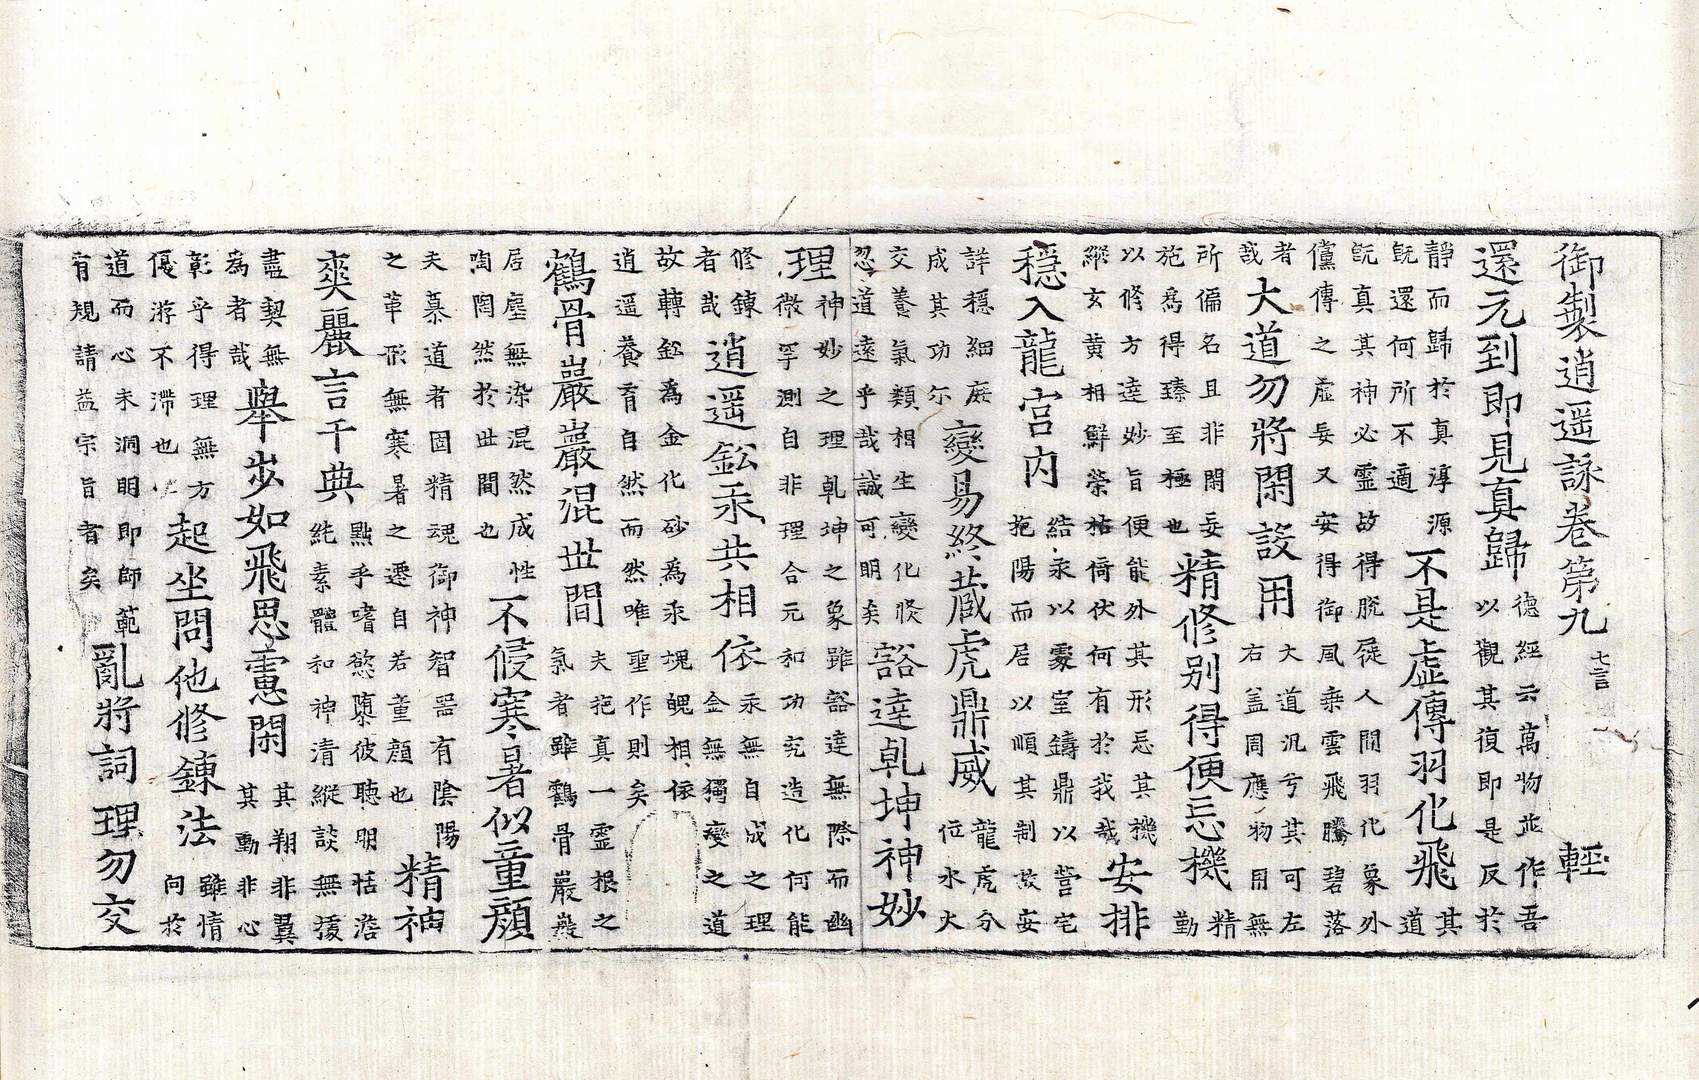 御製逍遥詠卷第九 七言 輕
還元到即見真歸 德經云萬物並作吾以觀其復即是反於
靜而歸於真淳源既還何所不適 不是虛傳羽化飛 其道
既真其神必靈故得脫屣人間羽化象外儻傳之虛妄又安得御風乘雲飛騰碧落
者哉 大道勿將閑設用 大道汎兮其可左右蓋周應物用無
所偏名且非閑妄施爲得臻至極也 精修別得便忘機 精勤
以修方達妙旨便能外其形忘其機縱玄黃相鮮榮枯倚伏何有於我哉 安排
穩入龍宮內 結汞以室鑄鼎以營宅抱陽而居以順其制故安
詳穩細度成其功尔 變易終藏虎鼎威 龍虎分位水火
交養氣類相生變化倏忽道遠乎哉誠可明矣 豁達乹坤神妙
理 神妙之理乹坤之象雖豁達無際而幽微罕測自非理合元和功究造化何能
修鍊者哉 逍遥鈆汞共相依 汞無自成之理金無獨變之道
故轉鈆為金化砂為汞媿魄相依逍遥養育自然而然唯聖作則矣
鶴骨巖巖混世間 夫抱真一靈根之氣者雖鶴骨巖巖
居塵無染混然成性陶陶然於世間也 不侵寒暑似童顏
夫慕道者固精魂御神智器有陰陽之革形無寒暑之遷自若童顏也 精神
爽麗言干典 黜乎嗜慾隳彼聰明恬澹純素體和神清縱談無援
盡契無為者哉 舉步如飛思慮閑 其翔非翼其動非心
彰乎得理無方優游不滯也 起坐問他修鍊法 雖情問於
道而心未洞明即師範有規請益宗旨者矣 亂將詞理勿交